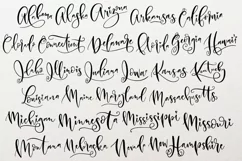 Alabama Alaska Arizona Arkansas California
Colorado Connecticut Delaware Florida Georgia Hawaii
Idaho Illinois Indiana Iowa Kansas Kentucky
Louisiana Maine Maryland Massachusetts
Michigan Minnesota Mississippi Missouri
Montana Nebraska Nevada New Hampshire